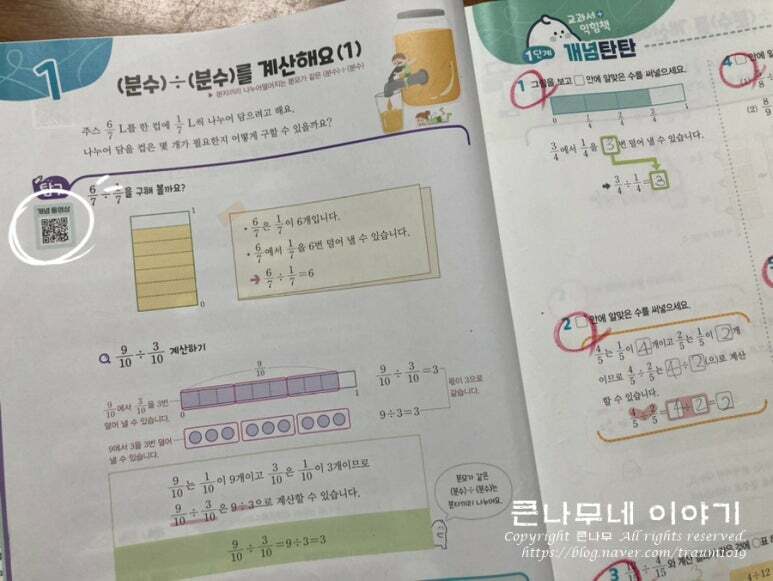 1
(분수)÷(분수)를 계산해요(1)
▶ 분자끼리 나누어떨어지는 분모가 같은 (분수)÷(분수)
주스 6/7 L를 한 컵에 1/7 L씩 나누어 담으려고 해요.
나누어 담을 컵은 몇 개가 필요한지 어떻게 구할 수 있을까요?
탐구
6/7÷1/7을 구해 볼까요?
개념 동영상
1
0
• 6/7은 1/7이 6개입니다.
• 6/7에서 1/7을 6번 덜어 낼 수 있습니다.
➔ 6/7÷1/7=6
9/10÷3/10 계산하기
9/10
9/10에서 3/10을 3번
덜어 낼 수 있습니다.
0
1
9에서 3을 3번 덜어
낼 수 있습니다.
9/10÷3/10=3
9÷3=3
몫이 3으로
같습니다.
9/10는 1/10이 9개이고 3/10은 1/10이 3개이므로
9/10÷3/10은 9÷3으로 계산할 수 있습니다.
9/10÷3/10=9÷3=3
분모가 같은
(분수)÷(분수)는
분자끼리 나누어요.
교과서+
익힘책
1단계 개념탄탄
1 그림을 보고 □ 안에 알맞은 수를 써넣으세요.
0 1/4 2/4 3/4 1
3/4에서 1/4을 3번 덜어 낼 수 있습니다.
➡ 3/4÷1/4=3
2 □ 안에 알맞은 수를 써넣으세요.
4/5는 1/5이 4개이고 2/5는 1/5이 2개
이므로 4/5÷2/5는 4÷2(으)로 계산
할 수 있습니다.
4/5÷2/5=4÷2=2
3
4
안에 알
(2) 8/9
4÷12
큰나무네 이야기
Copyright 큰나무 All rights reserved.
https://blog.naver.com/traum1019